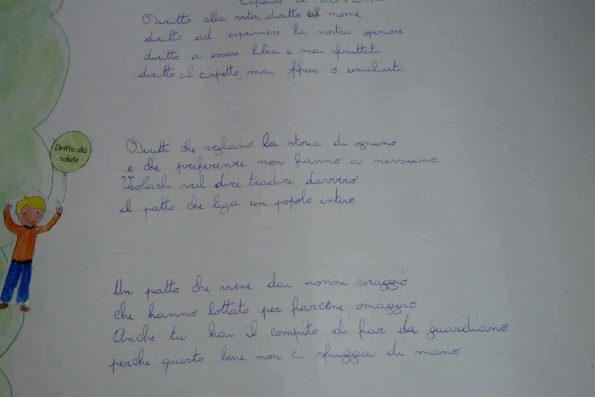 risponde al DOVERE
Diritto alla vita, diritto al nome
diritto ad esprimere la nostra opinione
diritto a essere liberi e mai sfruttati
diritto al rispetto, mai offesi o umiliati.
Diritti che vegliano la storia di ognuno
e che preferenze non fanno a nessuno.
Violarli vuol dire tradire davvero
il patto che lega un popolo intero
Diritto alla
salute
Un patto che viene dai nonni coraggio
che hanno lottato per farcene omaggio
Anche tu hai il compito di far da guardiano
perché questo bene non ci sfugga di mano